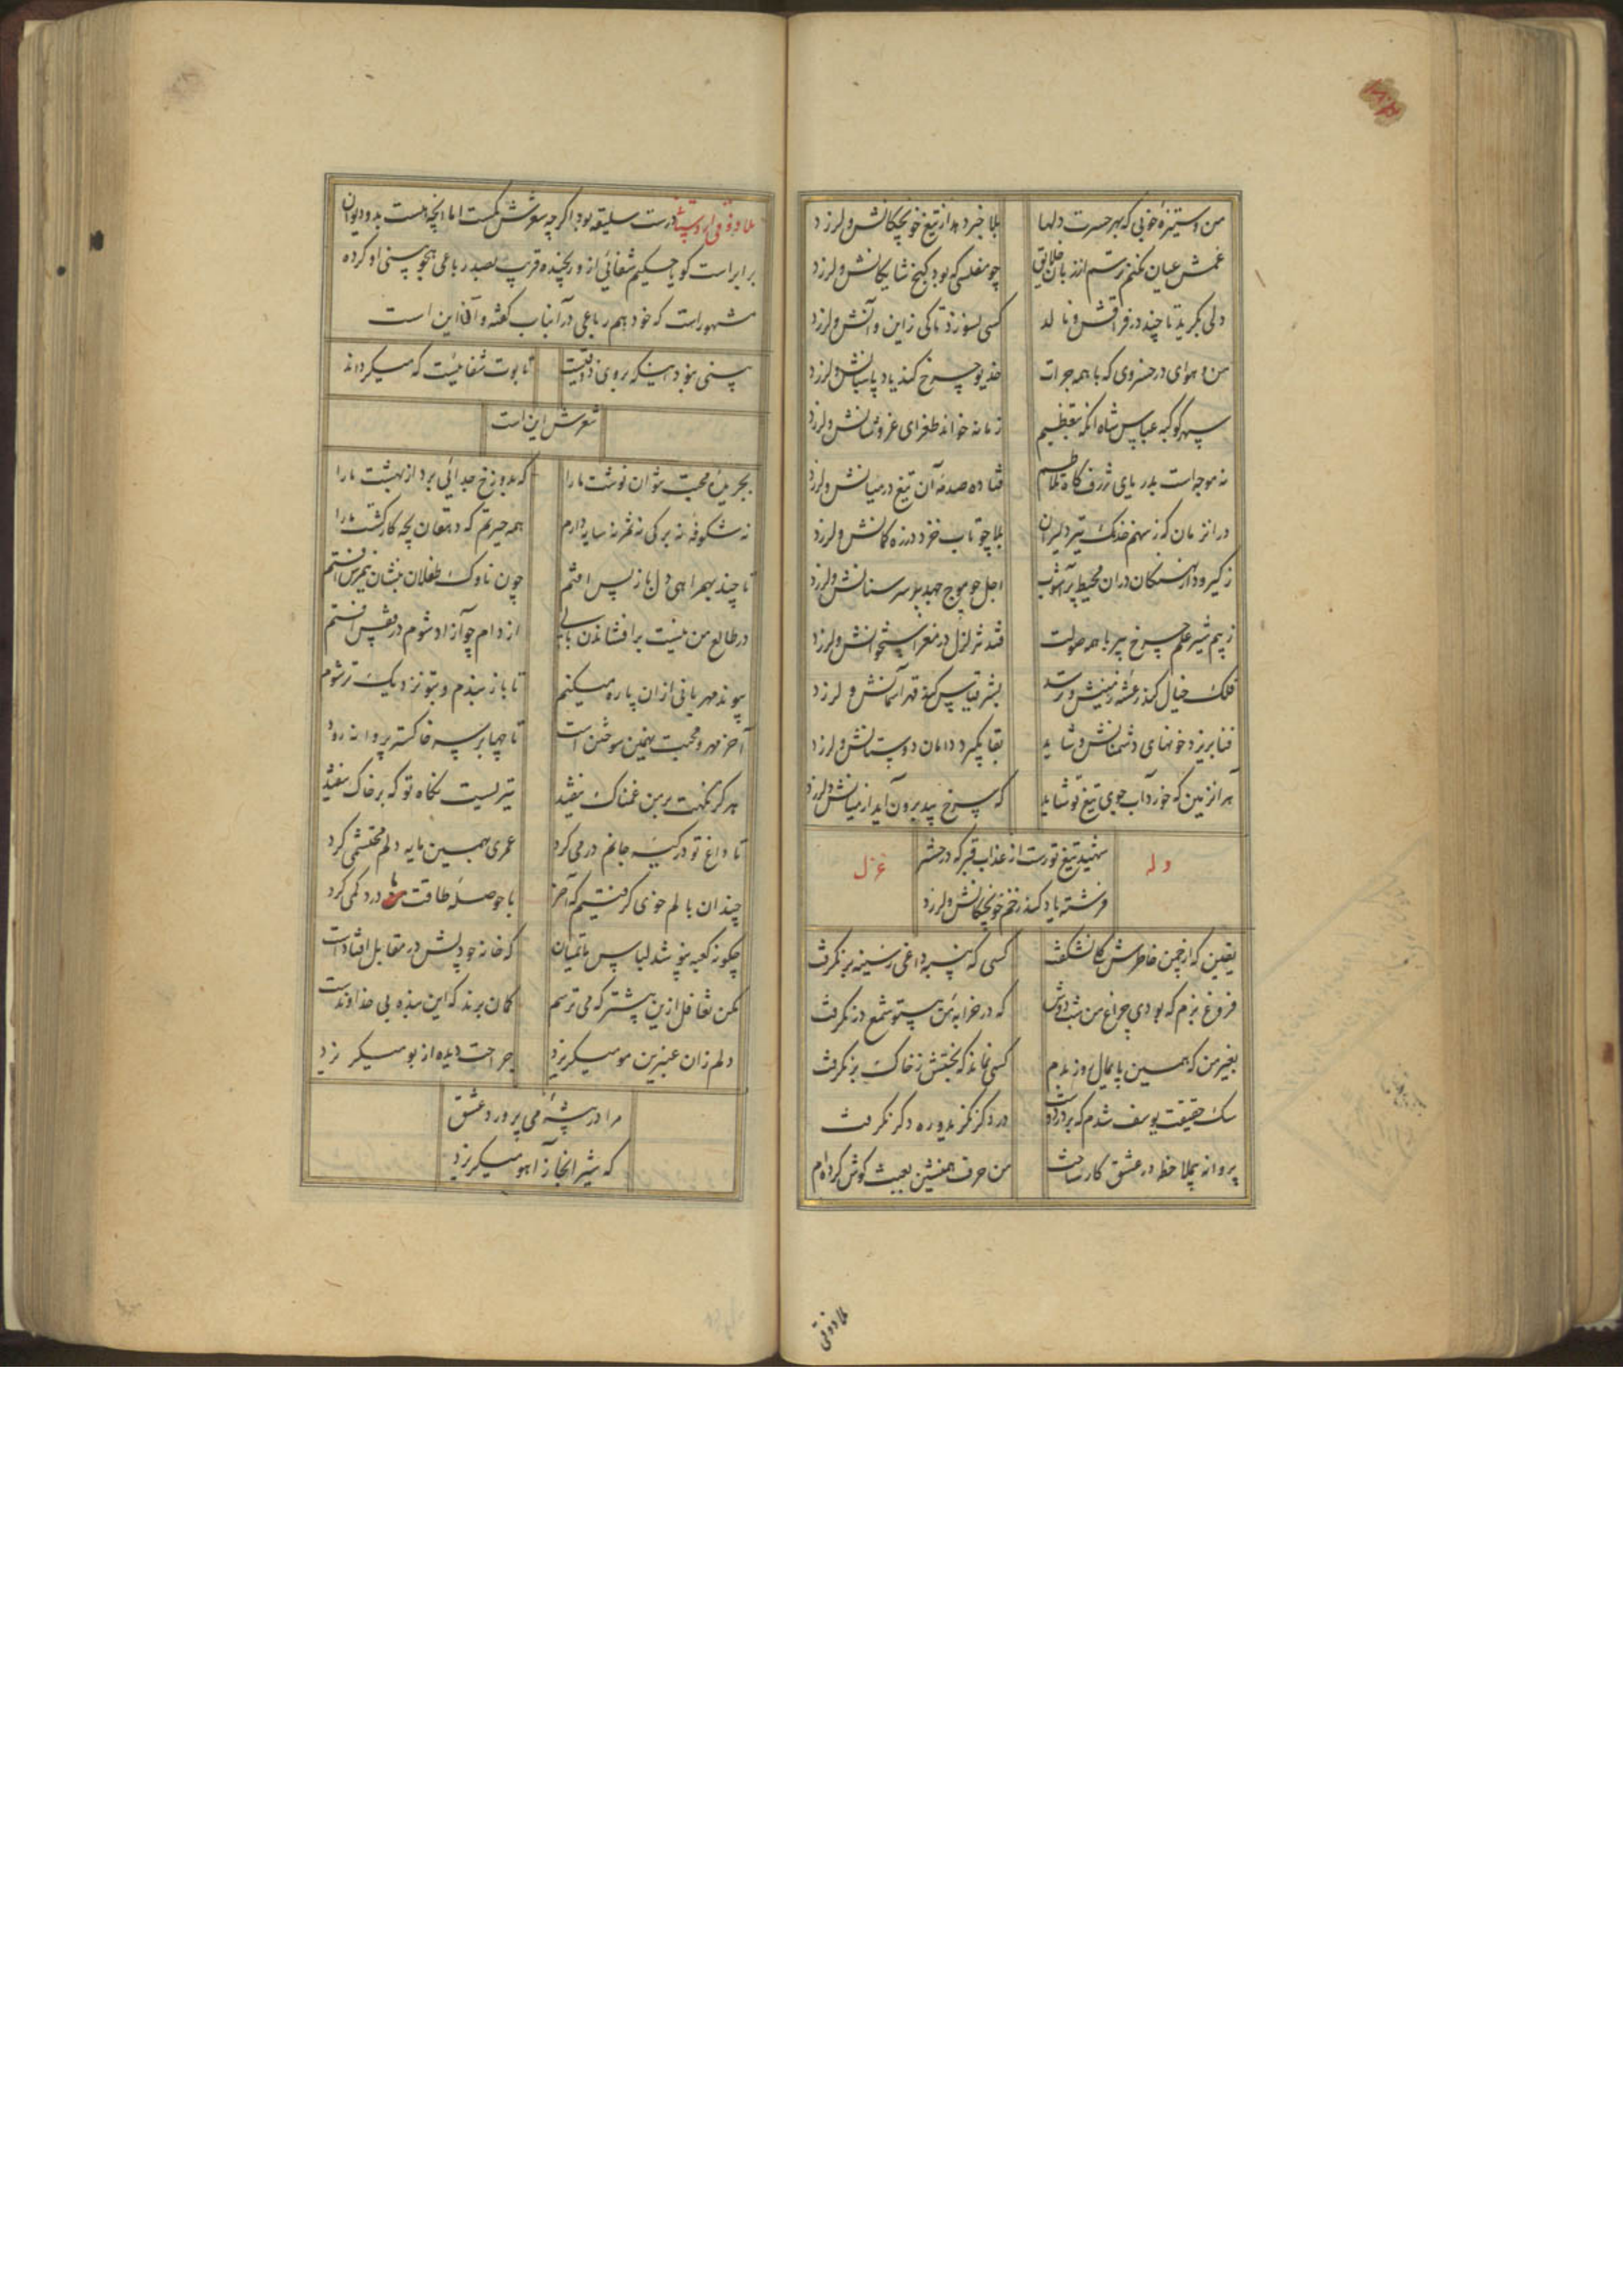 من و ستیزهٔ خوبی که بهر حسرت دلها
بلا خبر دهد از تیغ خونچکانش و لرزد
غمش عیان نکنم ترسم از زبان خلایق
چو مفلسی که بود گنج شایگانش و لرزد
دلی بگرید تا چند در فراقش و نالد
کسی بسوزد تا کی ز این و آنش و لرزد
من و هوای در خسروی که با همه جرات
خدیو چرخ کند یاد پاسبانش و لرزد
سپهر کوکبه عباس شاه آنکه بتعظیم
زمانه خواند طغرای عز و شانش و لرزد
نه موجه است بدریای ژرف گاه تلاطم
فتاده صدمهٔ آن تیغ در میانش و لرزد
در آنزمان که ز سهم خدنک تیر دلیران
بلا چو تاب خورد در زه کمانش و لرزد
ز گیرودار نهنگان در آن محیط پر آشوب
اجل چو موج جهد بر سر سنانش و لرزد
ز بیم شیر علم چرخ پیر با همه صولت
فتد تزلزل در مغز استخوانش و لرزد
فلک خیال کند رعشه زمینش و ترسد
بشر قیاس کند قهر آسمانش و لرزد
فنا بریزد خونهای دشمنانش و شاید
بقا بگیرد دامان دوستانش و لرزد
هر آنزمین که خورد آب جوی تیغ تو شاید
که سرخ بید برون آید از میانش و لرزد
وله
شهید تیغ تو رست از عذاب قبر که در حشر
فرشته یاد کند زخم خونچکانش و لرزد
غزل
یقین که از چمن خاطرش گلی نشکفت
کسی که پنبه داغی ز سینه بر نگرفت
فروغ بزم که بودی چراغ من شب دوش
که در خرابهٔ من بیتو شمع در نگرفت
بغیر من که همین پایمال روز بدم
کسی نماند که بختش ز خاک بر نگرفت
سک حقیقت یوسف شدم که بر در دوست
در دگر نزد و ره دگر نگرفت
پروانه بیملاحظه در عشق کار ساخت
من حرف همنشین بعبث گوش کرده‌ام
ملا ذوقی
ملا ذوقی اردستانی درست سلیقه بود اگرچه شعرش کمست اما آنچه هست بدو دیوان
برابر است گویا حکیم شفائی از و رنجیده قریب بصد رباعی هجو بینی او کرده
مشهور است که خود هم رباعی در آنباب گفته و آن این است
بینی نبود اینکه بروی ذوقیت
تابوت شفائیست که میگرداند
شعرش این است
بجریدهٔ محبت نتوان نوشت ما را
که بدوزخ جدائی برد از بهشت ما را
نه شکوفه نه برگی نه ثمر نه سایه دارم
همه حیرتم که دهقان بچه کار کشت ما را
تا چند بهمراهی دل باز پس افتم
چون ناوک طفلان بنشان نیمرس افتم
در طالع من نیست بر افشاندن بالی
از دام چو آزاد شوم در قفس افتم
پیوند مهربانی از آن پاره میکنم
تا باز بندم و بتو نزدیک‌تر شوم
آخر مهر و محبت بهمین سوختن است
تا چها بر سر خاکستر پروانه رود
هرگز نگهت بر من غمناک نیفتد
تیریست نگاه تو که بر خاک نیفتد
تا داغ تو در کیسه جانم درمی کرد
عمری بهمین مایه دلم محتشمی کرد
چندان بالم خوی گرفتیم که آخر
با حوصله طاقت ما درد کمی کرد
چگونه کعبه نپوشد لباس ماتمیان
که خانهٔ چو دلش در مقابل افتادست
مکن تغافل ازین بیشتر که می ترسم
گمان برند که این بنده بی خداوندست
دلم زان عنبرین مو میگریزد
جراحت دیده از بو میگریزد
مرا در بیشهٔ می پرورد عشق
که شیر آنجا ز آهو میگریزد